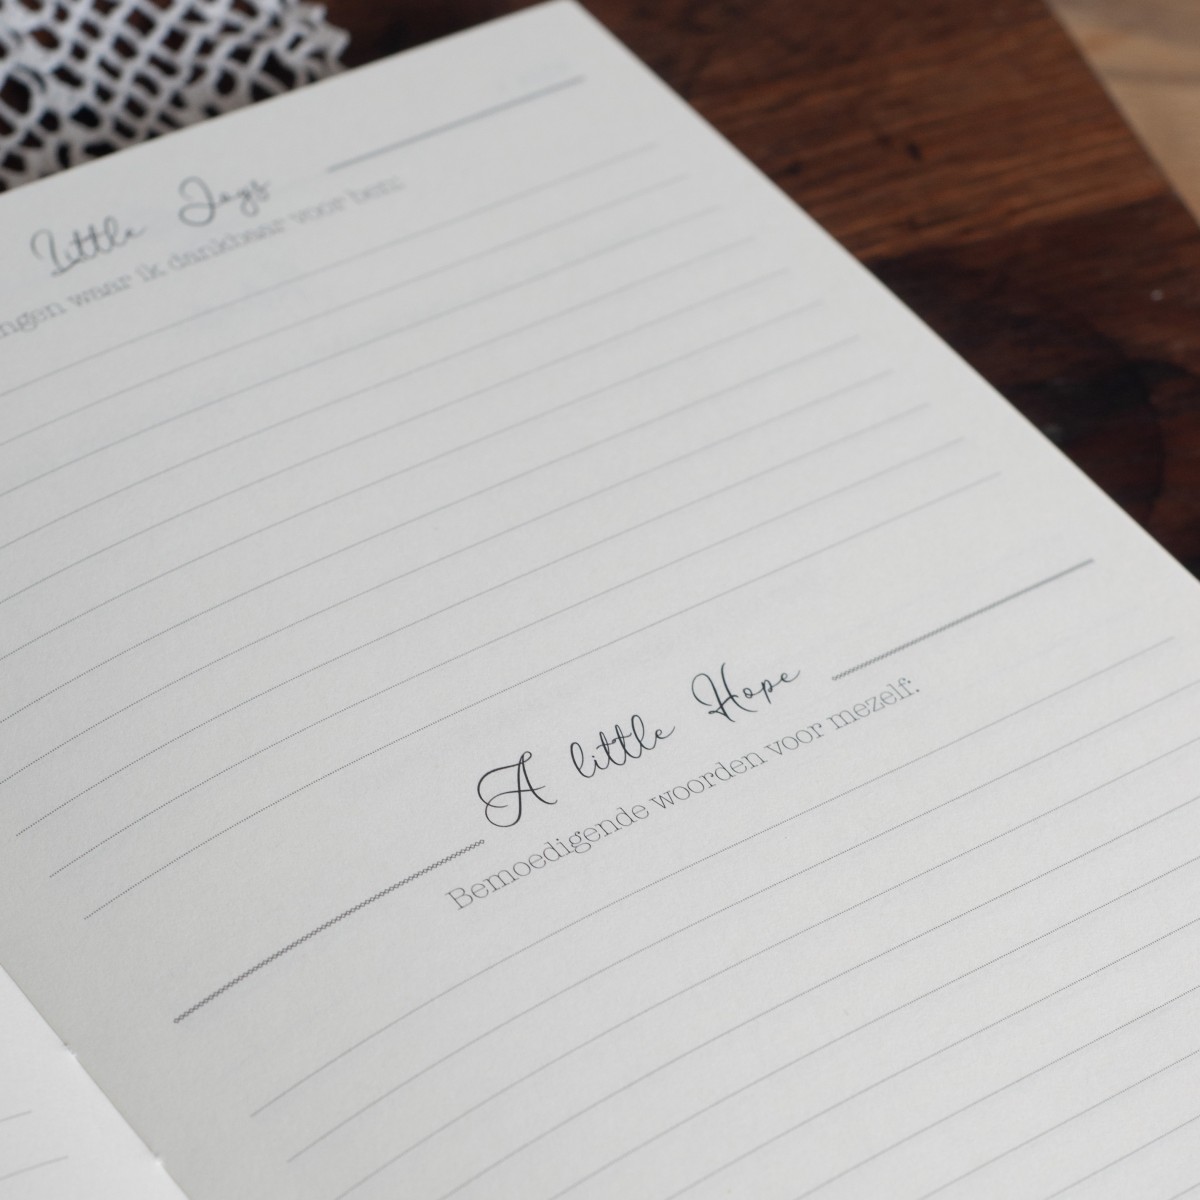 Little Joys
waar ik dankbaar voor ben:
A little Hope
Bemoedigende woorden voor mezelf: